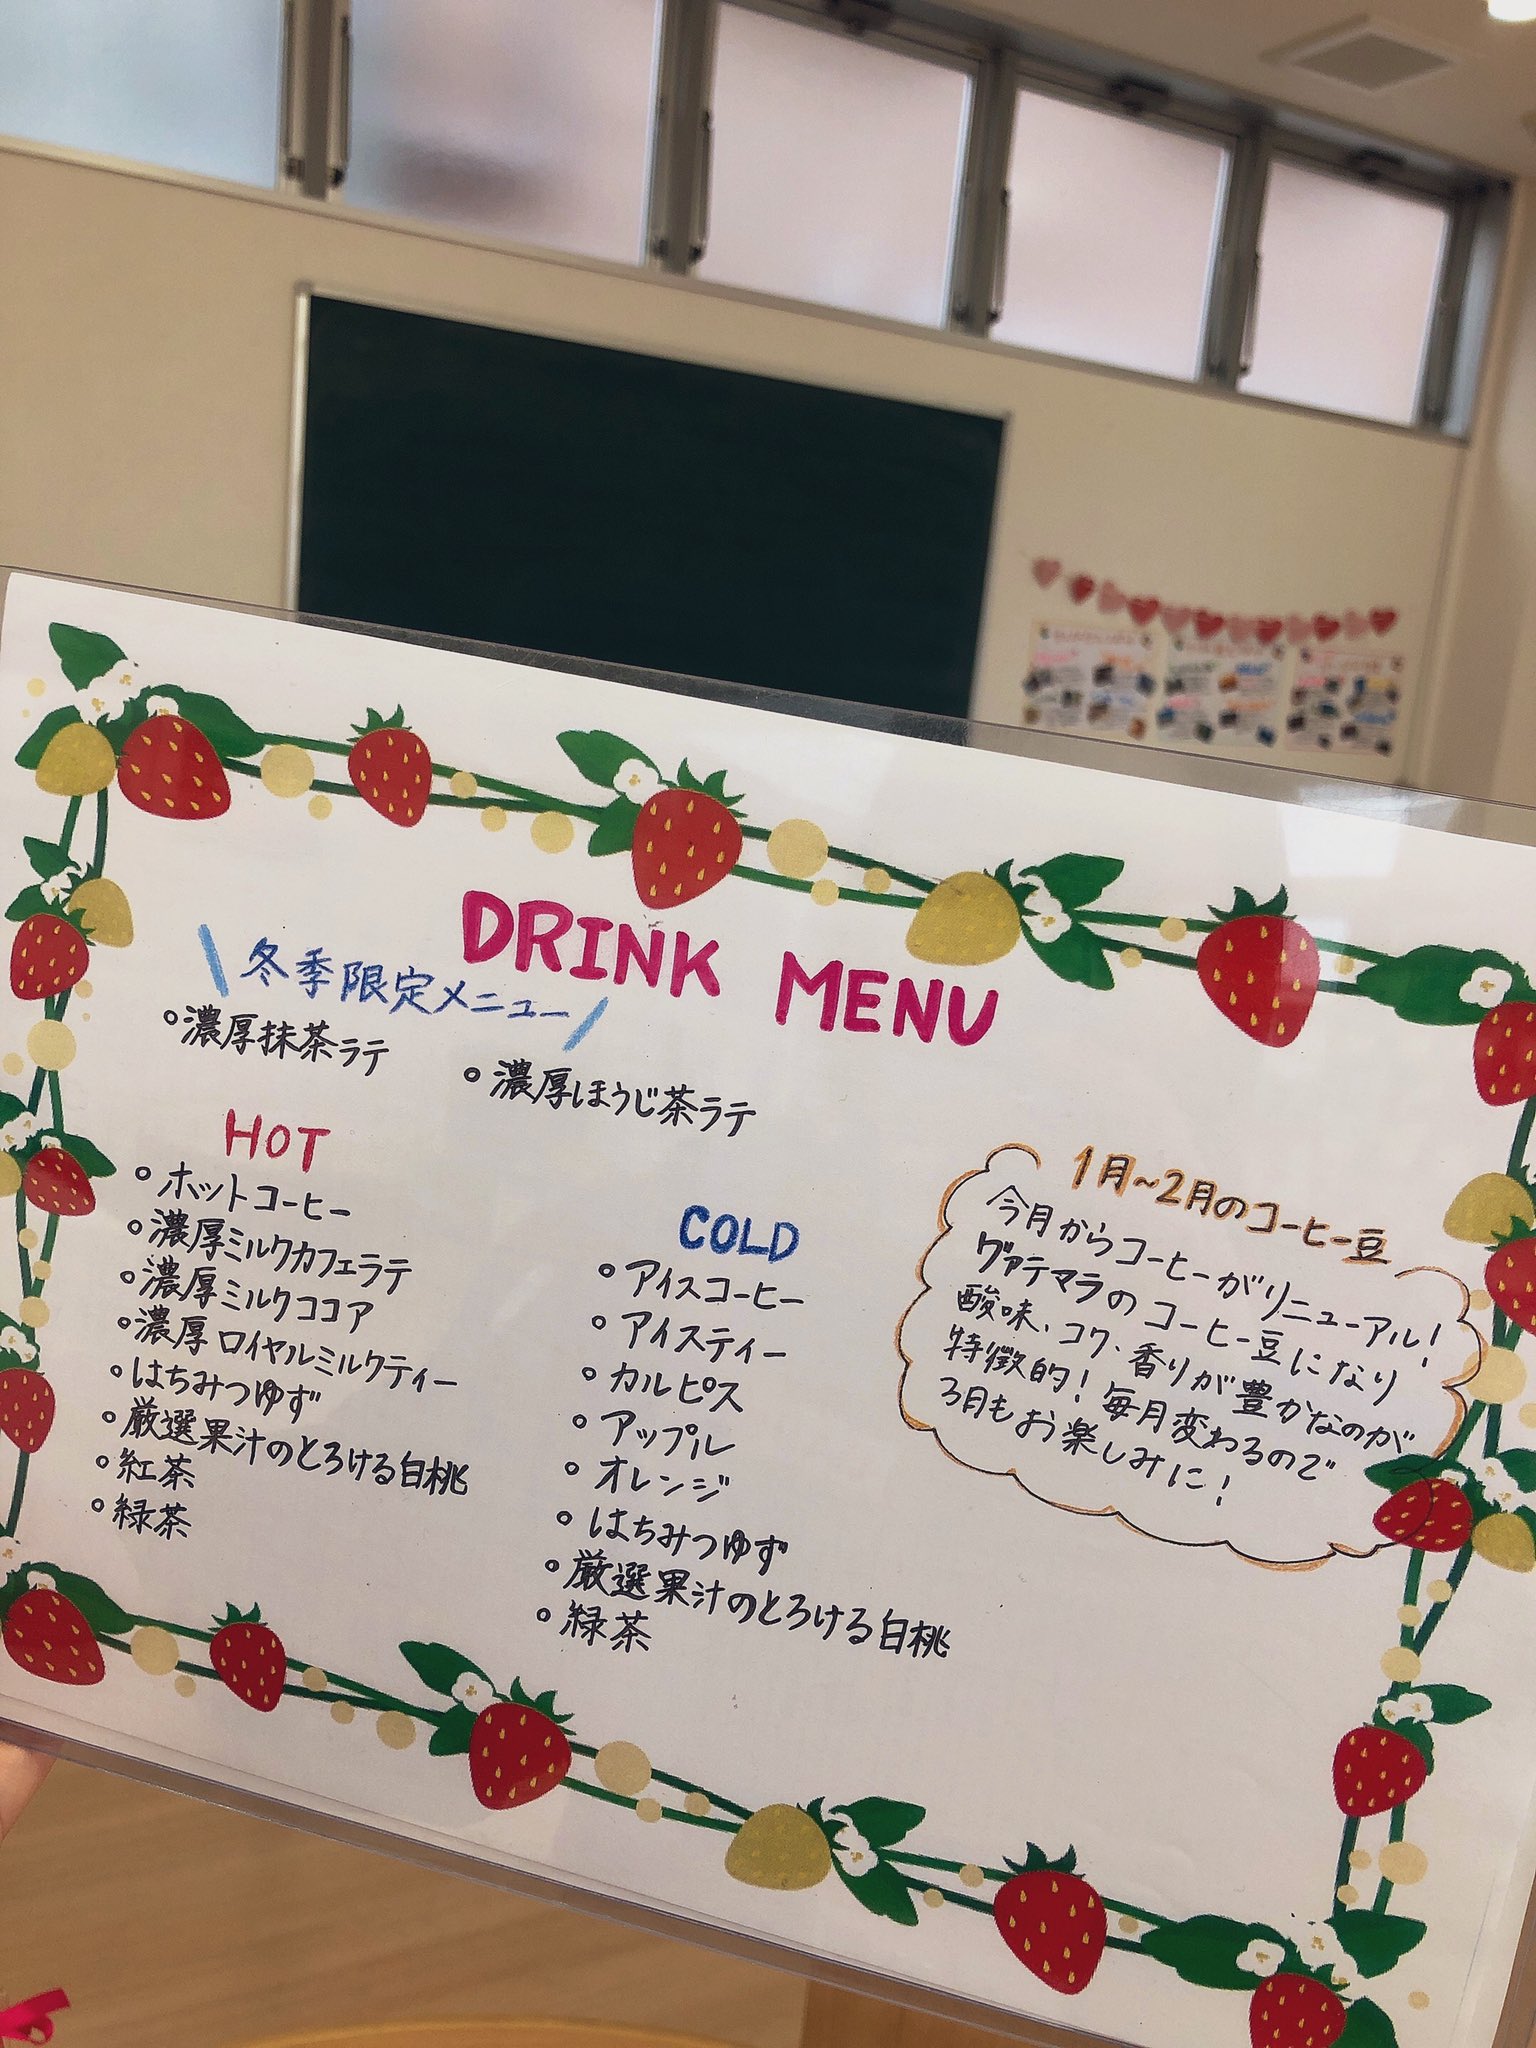 DRINK MENU
冬季限定メニュー
濃厚抹茶ラテ
濃厚ほうじ茶ラテ
HOT
ホットコーヒー
濃厚ミルクカフェラテ
濃厚ミルクココア
濃厚ロイヤルミルクティー
はちみつゆず
厳選果汁のとろける白桃
紅茶
緑茶
COLD
アイスコーヒー
アイスティー
カルピス
アップル
オレンジ
はちみつゆず
厳選果汁のとろける白桃
緑茶
1月~2月のコーヒー豆
今月からコーヒーがリニューアル!
グァテマラのコーヒー豆になり
酸味、コク、香りが豊かなのが
特徴的!毎月変わるので
3月もお楽しみに!